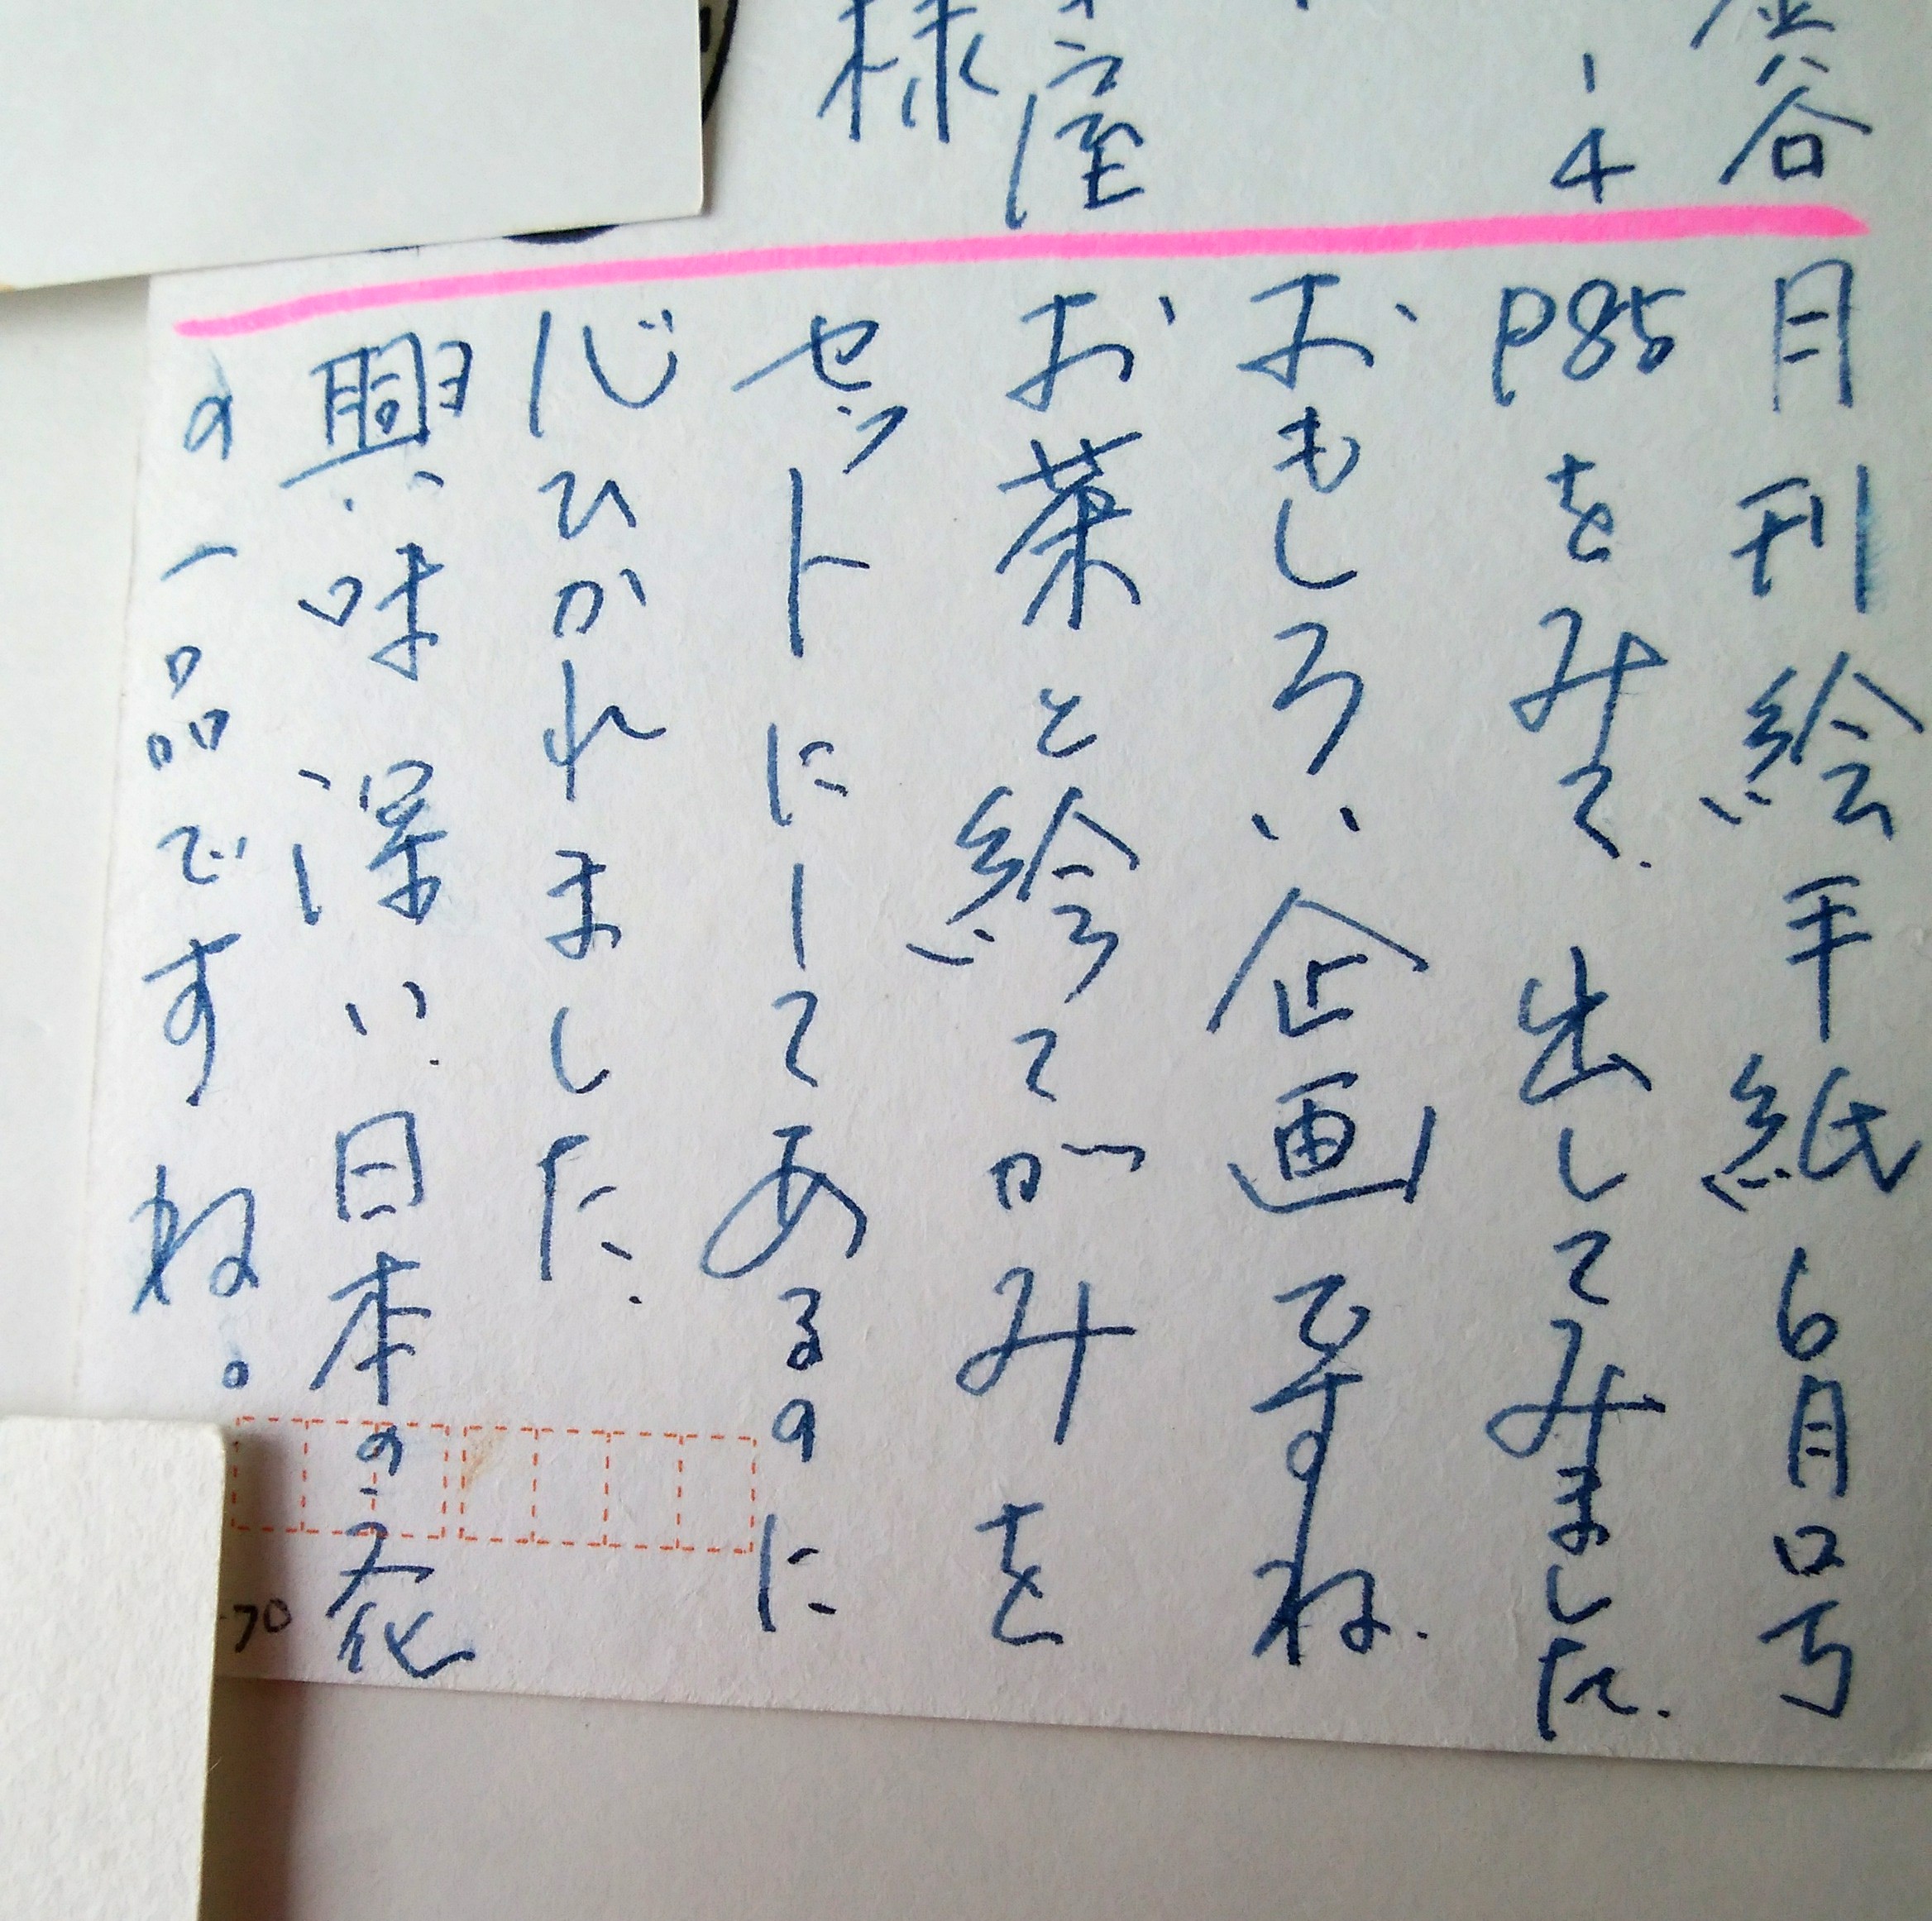 谷
-4
屋
様
月刊絵手紙6月号
P85をみて.出してみました.
おもしろい企画ですね.
お茶と絵てがみを
セットにしてあるのに
心ひかれました.
興味深い.日本の文化
の一品ですね。
70